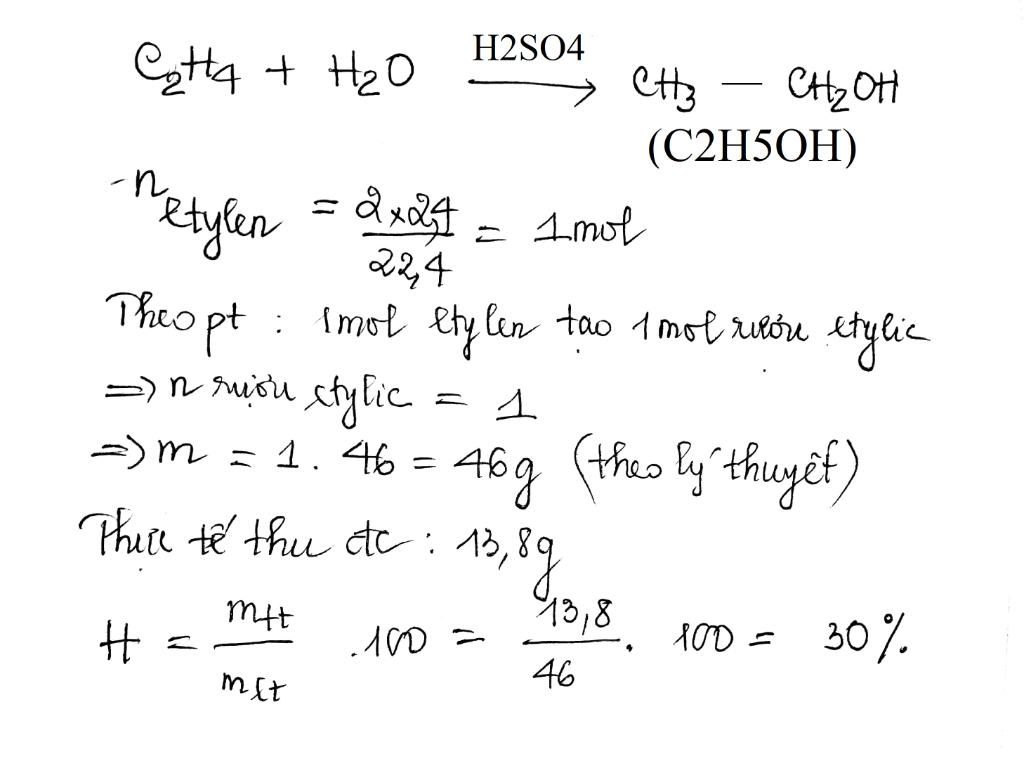 C2H4 + H2O H2SO4 → CH3 — CH2OH
(C2H5OH)
- n etylen = 2 x 2,4 / 22,4 = 1 mol
Theo pt : 1 mol etylen tạo 1 mol rượu etylic
=> n rượu etylic = 1
=> m = 1 . 46 = 46g (theo lý thuyết)
Thực tế thu đc : 13,8g
H = mtt / mlt . 100 = 13,8 / 46 . 100 = 30%.